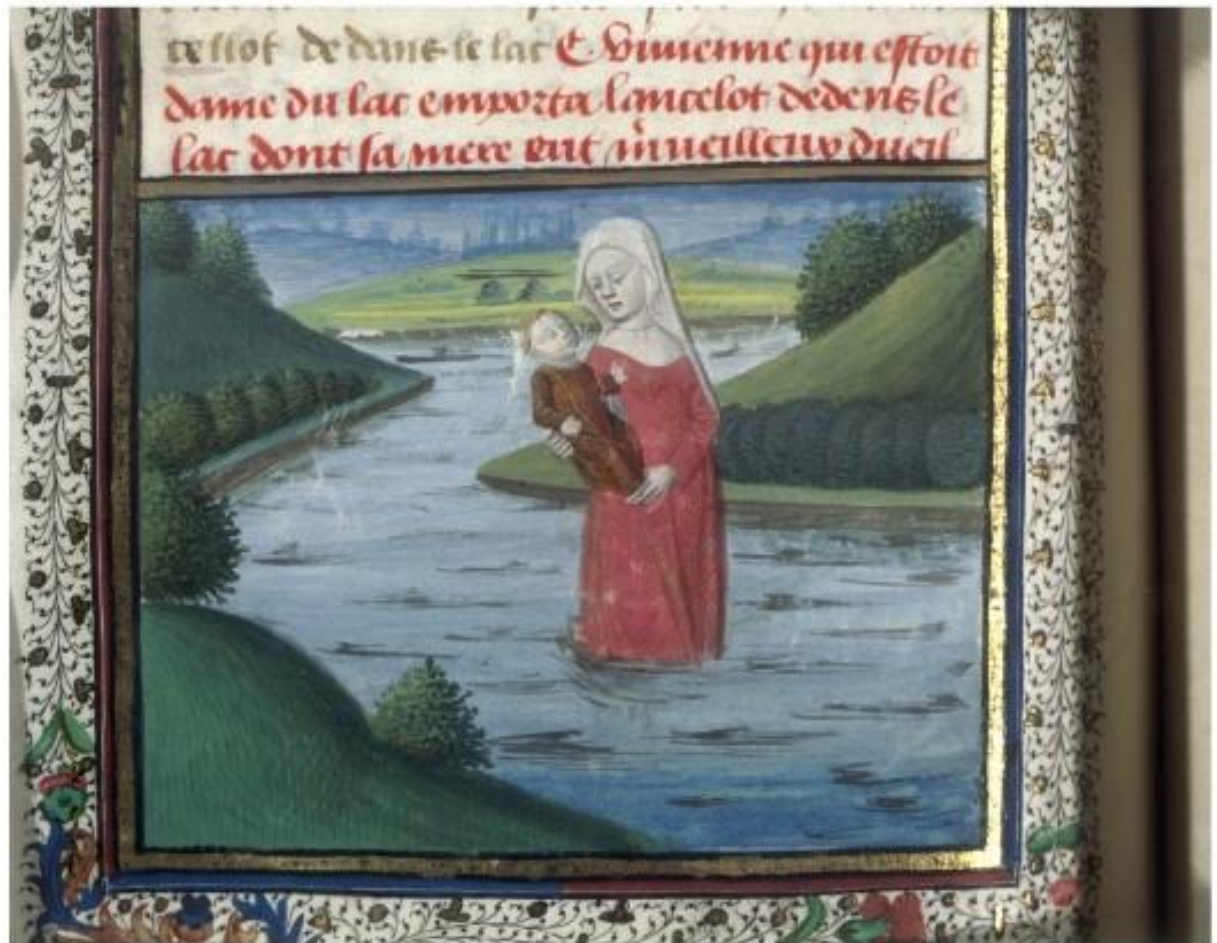 de dans le lac Et Vivienne qui estoit
dame du lac emporta lancelot dedens le
lac dont sa mere eut merveilleux dueil